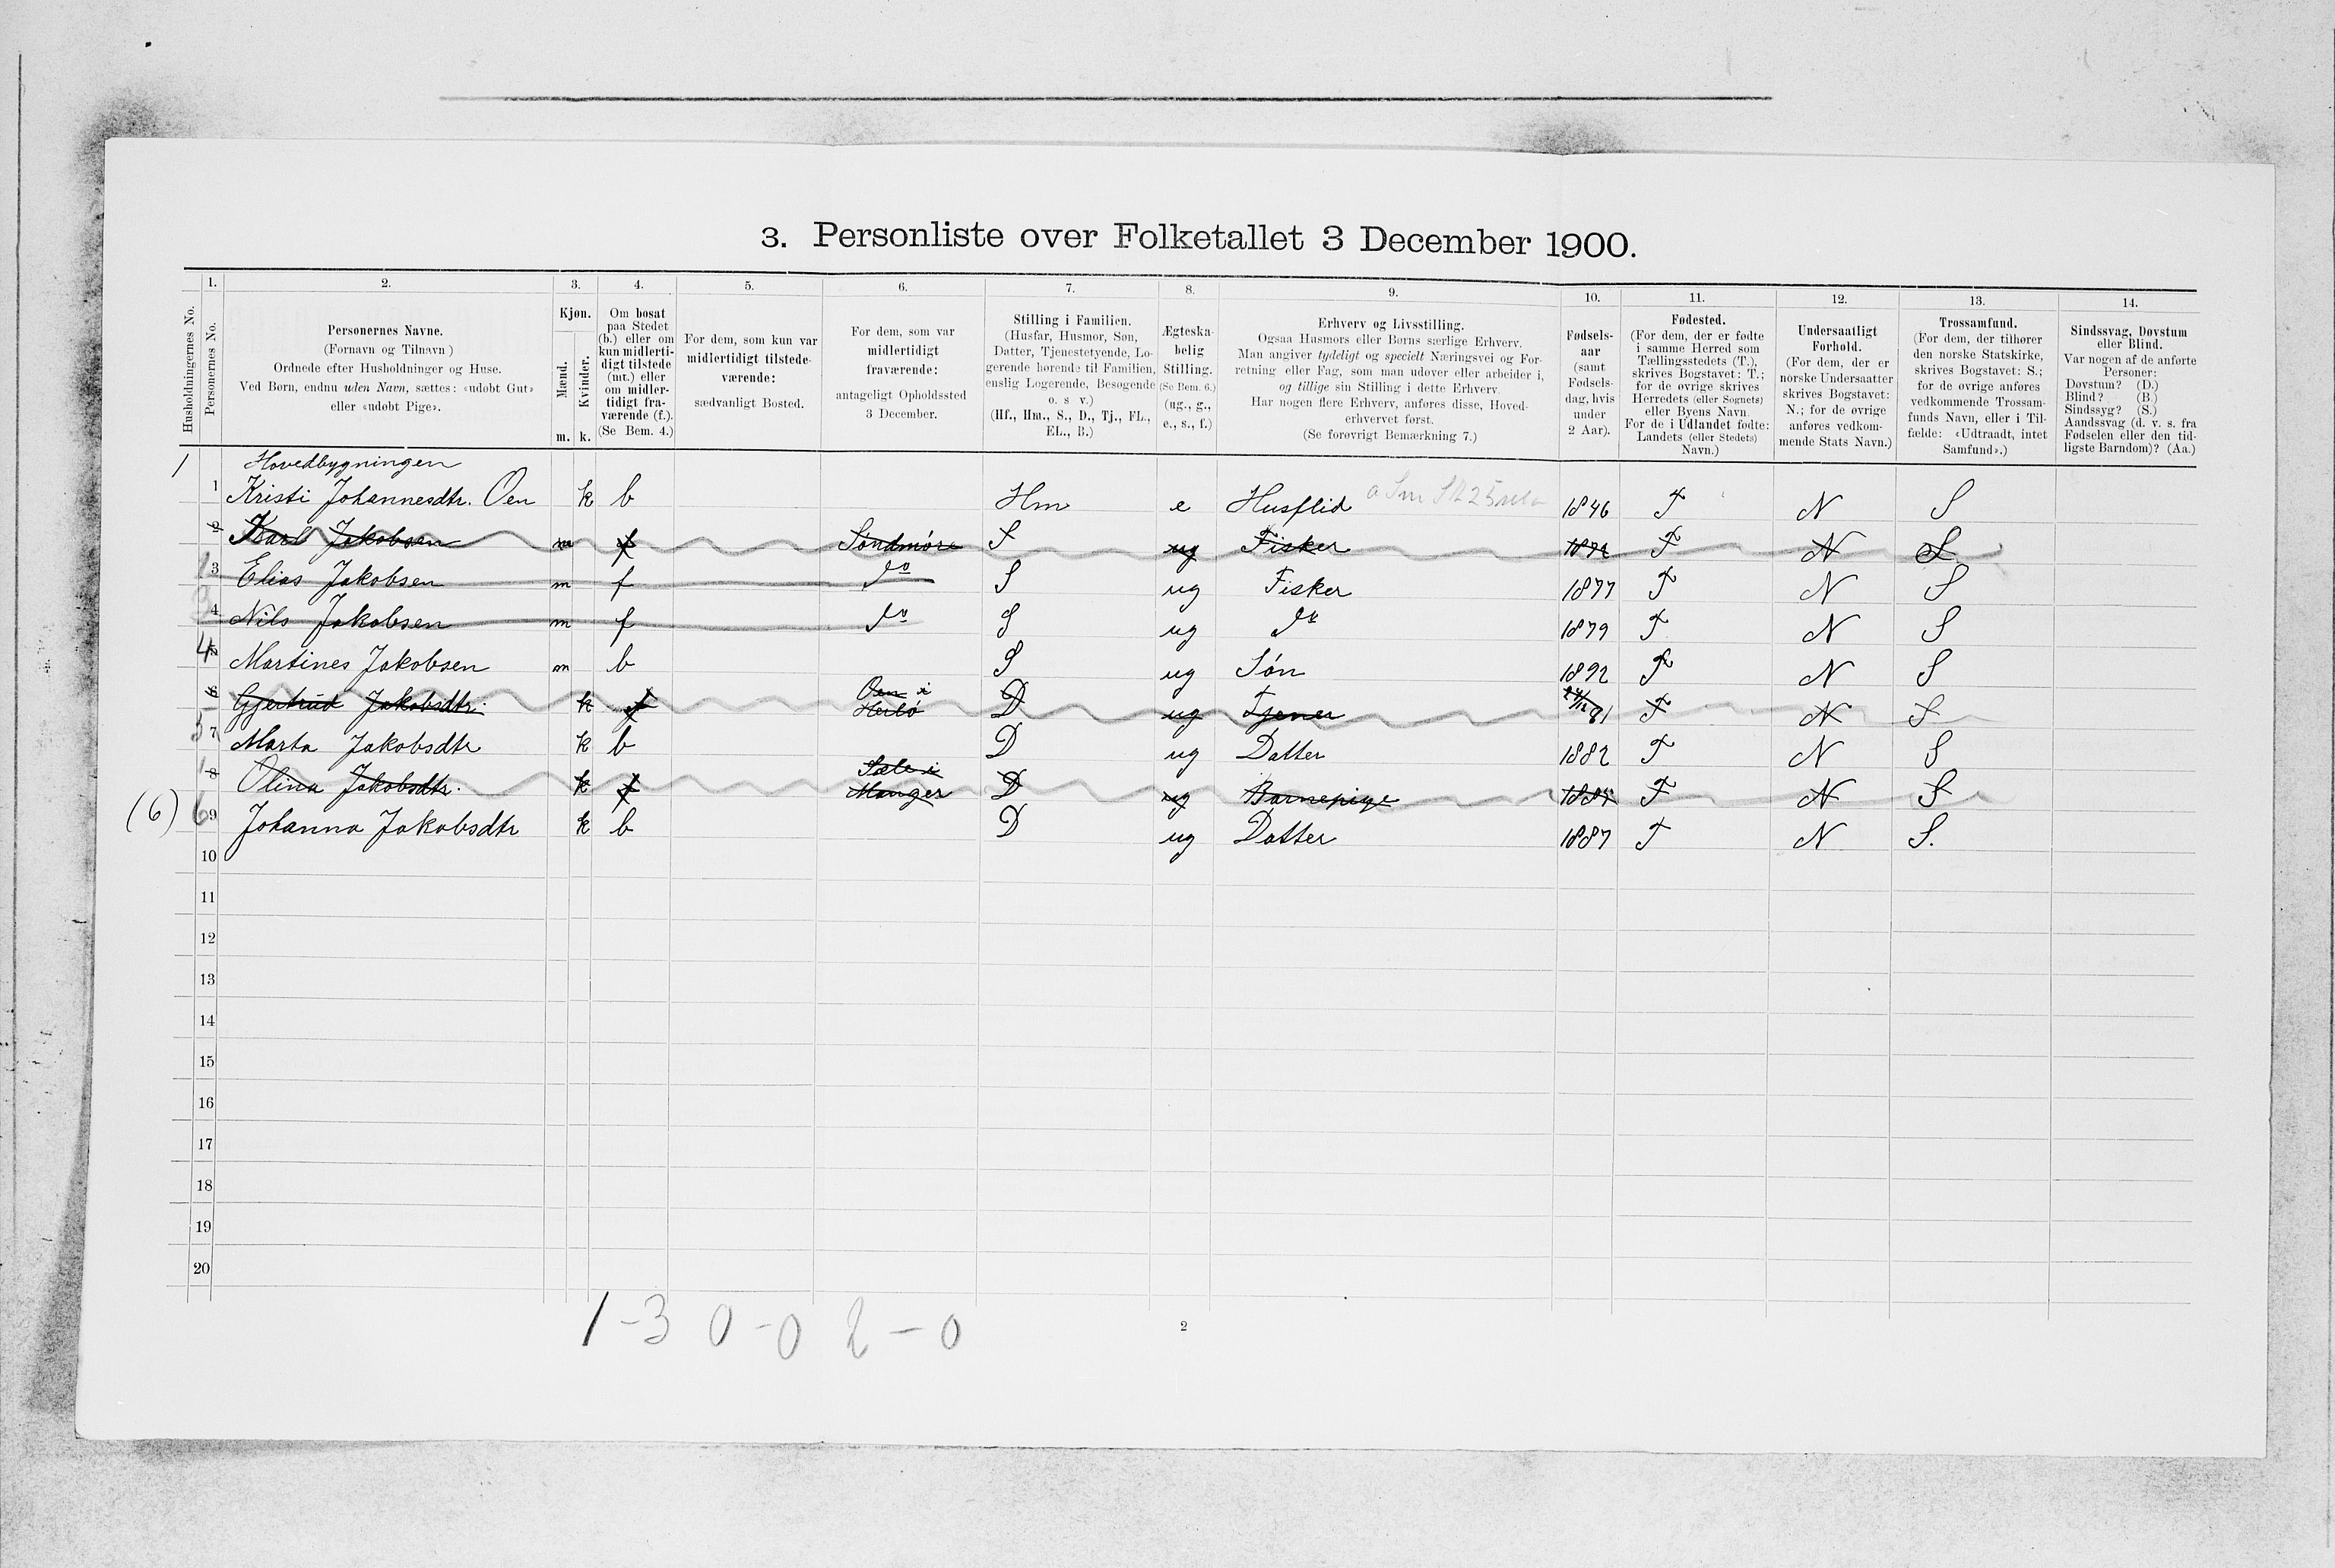 3. Personliste over Folketallet 3 December 1900.
1. 2. 3. 4. 5. 6. 7. 8. 9. 10. 11. 12. 13. 14.
Husholdningernes No.
Personernes No.
Personernes Navne.
(Fornavn og Tilnavn)
Ordnede efter Husholdninger og Huse.
Ved Børn, endnu uden Navn, sættes: «udøbt Gut»
eller «udøbt Pige».
Kjøn.
Mænd.
Kvinder.
m. k.
Om bosat
paa Stedet
(b.) eller om
kun midlerti-
digt tilstede
(mt.) eller
om midler-
tidigt fra-
værende (f.).
(Se Bem. 4.)
For dem, som kun var
midlertidigt tilstede-
værende:
sædvanligt Bosted.
For dem, som var
midlertidigt
fraværende:
antageligt Opholdssted
3 December.
Stilling i Familien.
(Husfar, Husmor, Søn,
Datter, Tjenestetyende, Lo-
gerende hørende til Familien,
enslig Logerende, Besøgende
o. s. v.)
(Hf., Hm., S., D., Tj., FL.,
EL., B.)
Ægteska-
belig
Stilling.
(Se Bem. 6.)
(ug., g.,
e., s., f.)
Erhverv og Livsstilling.
Ogsaa Husmors eller Børns særlige Erhverv.
Man angiver tydeligt og specielt Næringsvei og For-
retning eller Fag, som man udøver eller arbeider i,
og tillige sin Stilling i dette Erhverv.
Har nogen flere Erhverv, anføres disse, Hoved-
erhvervet først.
(Se forøvrigt Bemærkning 7.)
Fødsels-
aar
(samt
Fødsels-
dag, hvis
under
2 Aar).
Fødested.
(For dem, der er fødte
i samme Herred som
Tællingsstedets (T.),
skrives Bogstavet: T.;
for de øvrige skrives
Herredets (eller Sognets)
eller Byens Navn.
For de i Udlandet fødte:
Landets (eller Stedets)
Navn.)
Undersaatligt
Forhold.
(For dem, der er
norske Undersaatter
skrives Bogstavet:
N.; for de øvrige
anføres vedkom-
mende Stats Navn.)
Trossamfund.
(For dem, der tilhører
den norske Statskirke,
skrives Bogstavet: S.;
for de øvrige anføres
vedkommende Trossam-
funds Navn, eller i Til-
fælde: «Udtraadt, intet
Samfund».)
Sindssvag, Døvstum
eller Blind.
Var nogen af de anførte
Personer:
Døvstum? (D.)
Blind? (B.)
Sindssyg? (S.)
Aandssvag (d. v. s. fra
Fødselen eller den tid-
ligste Barndom)? (Aa.)
1 Hovedbygningen
1 Kristi Johannesdtr. Oen k b Hm e Husflid 1846 T N S
2 Karl Jakobsen m f Søndmøre S ug Fisker T N S
3 Elias Jakobsen m f do S ug Fisker 1877 T N S
4 Nils Jakobsen m f do S ug do 1879 T N S
4 Martines Jakobsen m b S ug Søn 1892 T N S
6 Gjertrud Jakobsdtr. k f Oen i Herlø D ug Tjener 81 T N S
5 7 Marta Jakobsdtr k b D ug Datter 1882 T N S
8 Olina Jakobsdtr. k f Manger D ug Barnepige T N S
(6) 6 9 Johanna Jakobsdtr k b D ug Datter 1887 T N S.
10
11
12
13
14
15
16
17
18
19
20
1-3 0-0 2-0
2